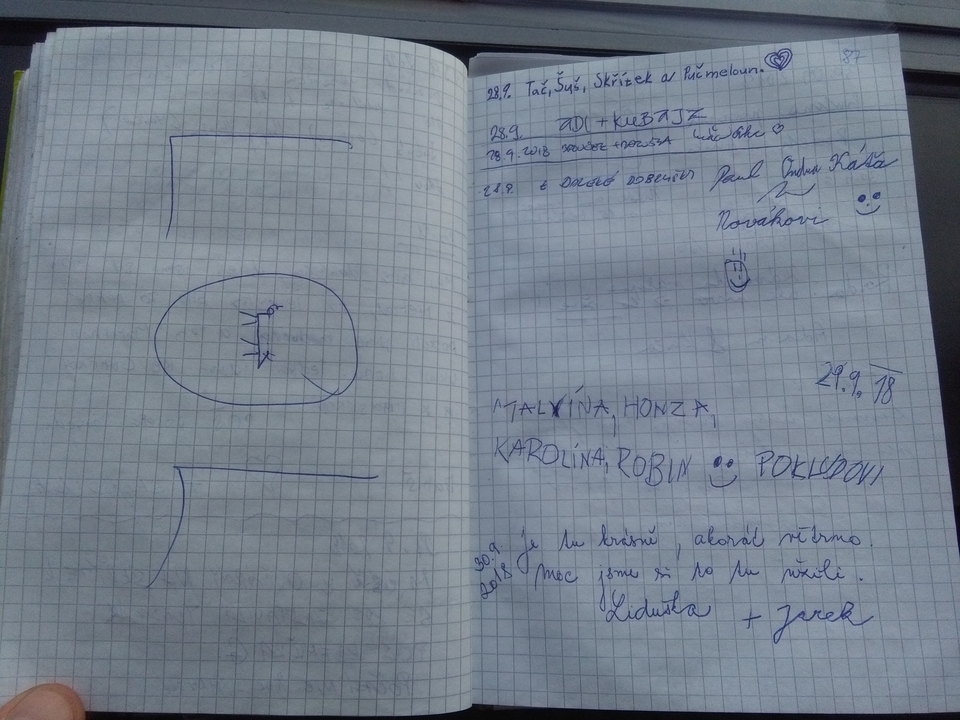 87
28.9. Tač, Šuš, Skřízek a Pučmeloun.
28.9. ADI + KUBAJZ
28.9.2018
28.9. Z DOLNÍ DOBROUČE Pavel Káťa
Novákovi
29.9. 18
MALVÍNA, HONZA,
KAROLÍNA, ROBIN POKLUDOVI
30.9. 2018 je tu krásně, akorát větrno.
Moc jsme si to tu užili.
Liduška + Jarek